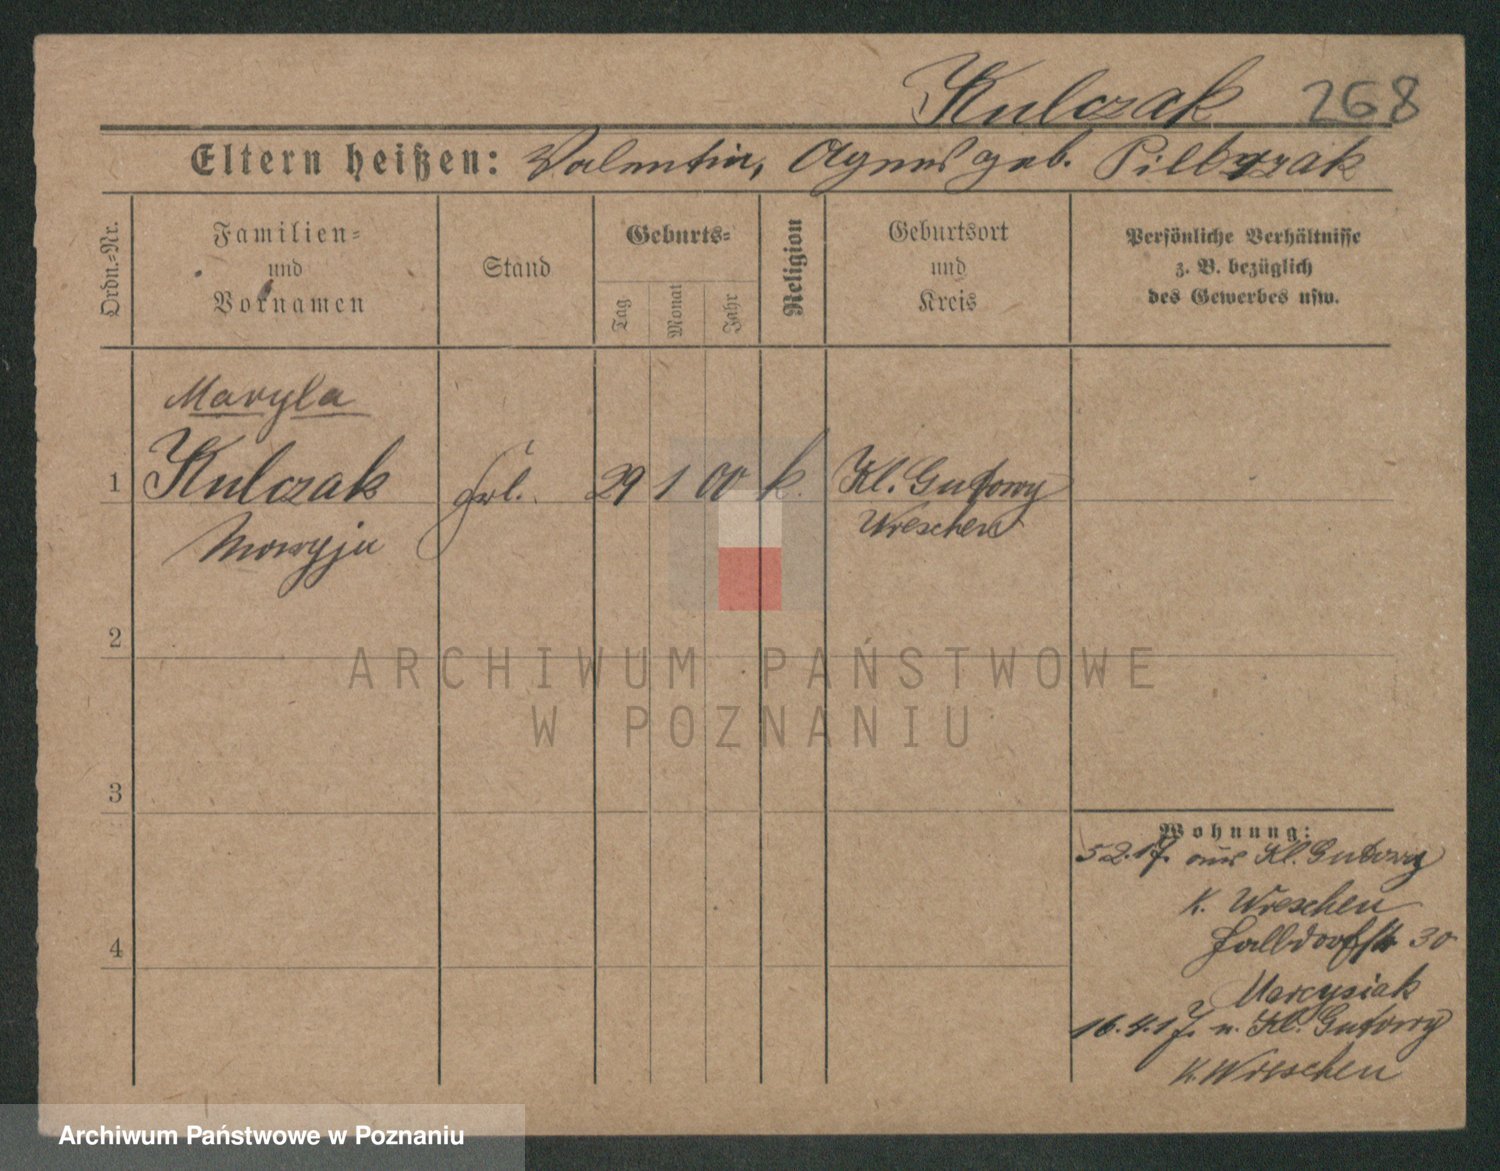 Kulczak 268
Eltern heißen: Valentin, Agnes geb. Pilbrzak
Ordn.-Nr.
Familien-
und
Vornamen
Stand
Geburts-
Tag
Monat
Jahr
Religion
Geburtsort
und
Kreis
Persönliche Verhältnisse
z. B. bezüglich
des Gewerbes usw.
Maryla
1 Kulczak Frl. 29 1 00 k. Kl. Gutowy
Wreschen
2
3
4
Wohnung:
5 2.17. aus Kl. Gutowy
K. Wreschen
Halbdorfstr 30
Marcysiak
16.4.17. n. Kl. Gutowy
K. Wreschen
ARCHIWUM PAŃSTWOWE
W POZNANIU
Archiwum Państwowe w Poznaniu